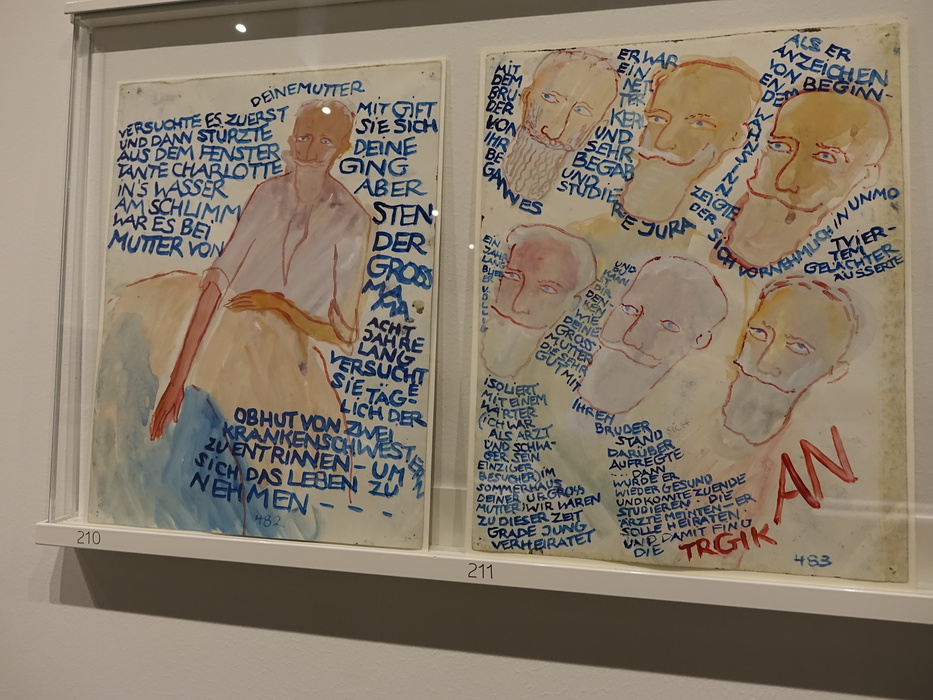 DEINE MUTTER
VERSUCHTE ES ZUERST
UND DANN STÜRZTE
AUS DEM FENSTER
TANTE CHARLOTTE
IN'S WASSER
AM SCHLIMM
WAR ES BEI
MUTTER VON
MIT GIFT
SIE SICH
DEINE
GING
ABER
STEN
DER
GROSS
MA
MA.
ACHT
JAHRE
LANG
VERSUCHT
SIE TÄG-
LICH DER
OBHUT VON ZWEI
KRANKENSCHWESTERN
ZU ENTRINNEN – UM
SICH DAS LEBEN ZU
NEHMEN – – – –
482
210
MIT
DEM
BRU
DER
VON
IHR
BE
GANN ES
ER WAR
EIN
NET
TER
KERL
UND
SEHR
BEGAB
UND
STUDIE
RE JURA
ALS ER
ANZEICHEN
VON BEGINN-
ENDEM
WAHNSINN
ZEIGTE
DER
SICH VORNEHMLICH IN UNMO
TVIER-
TEM
GELÄCHTER
ÄUSSERTE
EIN
JAHR
LANG
BLIEB
ER VÖLLIG
ISOLIERT
MIT EINEM
WÄRTER
(ICH WAR
ALS ARZT
UND SCHWA-
GER SEIN
EINZIGER
BESUCHER) IM
SOMMERHAUS
DEINER URGROSS
MUTTER) WIR WAREN
ZU DIESER ZEIT
GRADE JUNG
VERHEIRATET
UND
KANNST
DIR
DEN
KEN
WIE
DEINE
GROSS
MUTTER
DIE SEHR
GUT MIT
IHREM
BRUDER
STAND
SICH
DARÜBER
AUFREGTE
... DANN
WURDE ER
WIEDER GESUND
UND KONNTE ZUENDE
STUDIEREN. DIE
ÄRZTE MEINTEN – ER
SOLLE HEIRATEN.
UND DAMIT FING
DIE TRGIK
AN
483
211